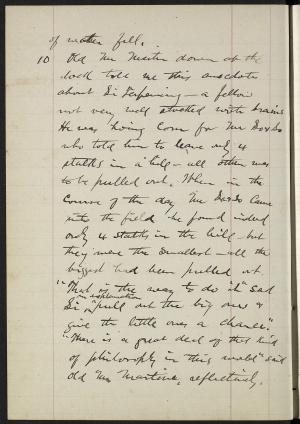 of matter full.
10 Old Mr Martin down at the
dock told me this anecdote
about Si — a fellow
not very well stocked with brains
He was hoing corn for Mr
who told him to leave only 4
stalks in a hill — all other was
to be pulled out. When in the
course of the day Mr came
into the field he found indeed
only 4 stalks in the hill — but
they were the smallest — all the
biggest had been pulled out
"That is the way to do it" said
Si in explanation "pull out the big ones &
give the little ones a chance."
"There is a great deal of that kind
of philosophy in this world" said
old Mr Martin, reflectively.